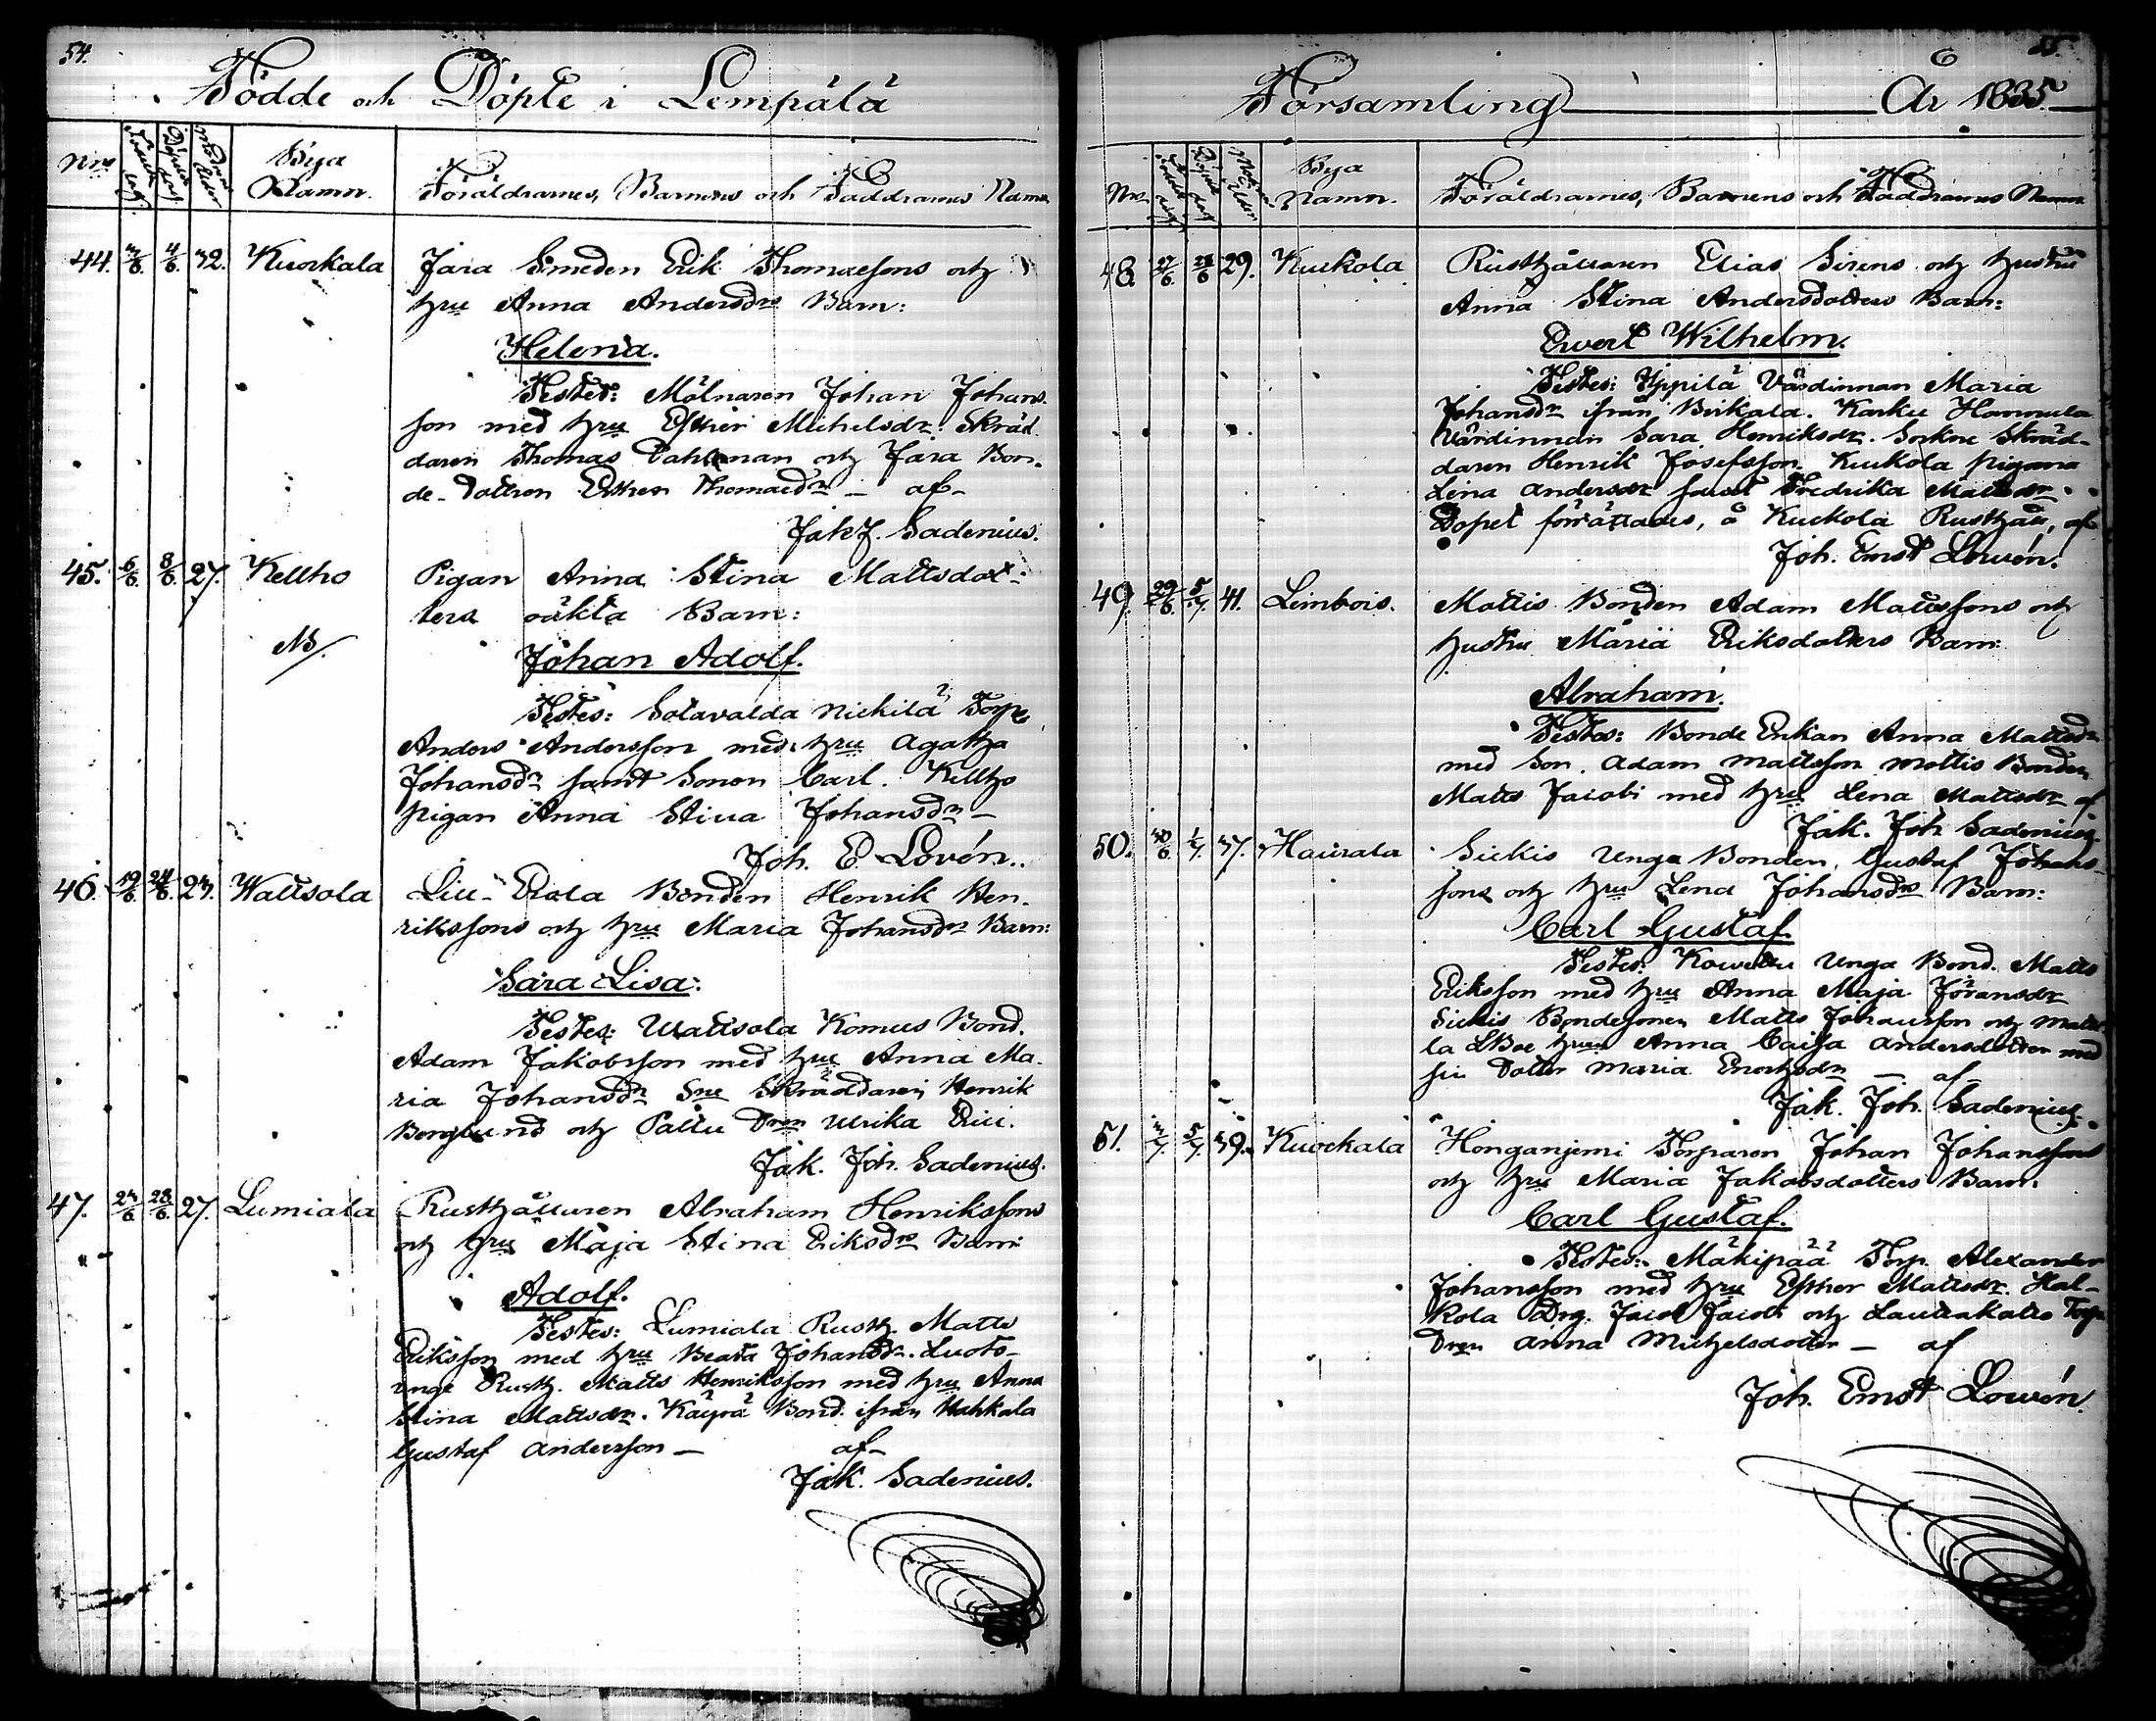 54.
Födde och Döpte i Lempälä
Nro
Födelse dag
Döpelse dag
Modrens ålder
Bya Namn.
Föräldrarnes, Barnens och Faddrarnes Namn
44. 3/6. 4/6. 32. Kuockala
Jara Smeden Erik Thomaesons och
hru Anna Andersdrs Barn:
Helena.
Testes: Mölnaren Johan Johans-
son med hru Esther Michelsdr: Skräd-
daren Thomas Dahlman och Jara Bon-
de-Dottren Esther Thomaedr — af
Jak J. Sadenius.
45. 6/6. 8/6. 27. Kellho
Pigan Anna Stina Mattsdot-
ters oäkta Barn:
NB.
Johan Adolf.
Testes: Sotavalda Nickilä Torp.
Anders Andersson med hru Agatha
Johansdr samt Sonen Carl. Kellho
pigan Anna Stina Johansdr —
Joh. E Lovén.
46. 19/6. 24/6. 23. Wattsola
Liu-Erola Bonden Henrik Hen-
rikssons och hru Maria Johansdrs Barn:
Sara Lisa:
Testes: Wattsola Komus Bond.
Adam Jakobsson med hru Anna Ma-
ria Johansdr Snu Skräddaren Henrik
Berglund och Pattu Dren Ulrika Erici.
Jak. Joh. Sadenius.
47. 23/6. 28/6. 27. Lumiala
Rusthållaren Abraham Henrikssons
och hru Maja Stina Eriksdrs Barn:
Adolf.
Testes: Lumiala Rusth. Matts
Eriksson med hru Beata Johansdr. Luoto-
Rusth. Matts Henriksson med hru Anna
Stina Mattsdr. Käyrä Bond. ifrån Hahkala
Gustaf Andersson — af
Jak. Sadenius.
55.
Församling År 1835.
Nro
Födelse dag
Döpelse dag
Modrens Ålder
Bya Namn.
Föräldrarnes, Barnens och Faddrarnes Namn
48. 27/6. 28/6 29. Kuckola
Rusthållaren Elias Sirens och hustru
Anna Stina Andersdotters Barn:
Ewert Wilhelm.
Testes: Yppilä Värdinnan Maria
Johansdr ifrån Birkala. Karku Harmula
Värdinnan Sara Henriksdr. Sockne Skräd-
daren Henrik Josefsson. Kuckola pigorna
Lina Andersdr samt Fredrika Mattsdr.
Dopet förrättades, å Kuckola Rusthåll, af
Joh. Ernst Lowén.
49. 29/6. 5/7. 41. Lembois.
Mattis Bonden Adam Mattssons och
hustru Maria Eriksdotters Barn:
Abraham.
Testes: Bonde Enkan Anna Mattsdr
med Son. Adam Mattsson Mattis Bonden
Matts Jacobi med hru Lena Mattsdr af
Jak. Joh Sadenius.
50. 30/6. 1/7. 37. Haurala
Sickis Unga Bonden, Gustaf Johans-
sons och hru Lena Johansdrs Barn:
Carl Gustaf
Testes: Unga Bond. Matts
Eriksson med hru Anna Maja Göransdr
Sickis Bondesonen Matts Johansson och
hrun Anna Caisa Andersdotter med
sin Dotter Maria — af
Jak. Joh. Sadenius.
51. 3/7. 5/7. 39. Kuockala
Honganjemi Torparen Johan Johanssons
och hru Maria Jakobsdotters Barn:
Carl Gustaf.
Testes: Mäkipää Torp. Alexander
Johansson med hru Esther Mattsdr. Hal-
kola Drg. Jacob Jacobi och Lautakatto Torp.
Dren Anna Michelsdotter — af
Joh. Ernst Lowén.